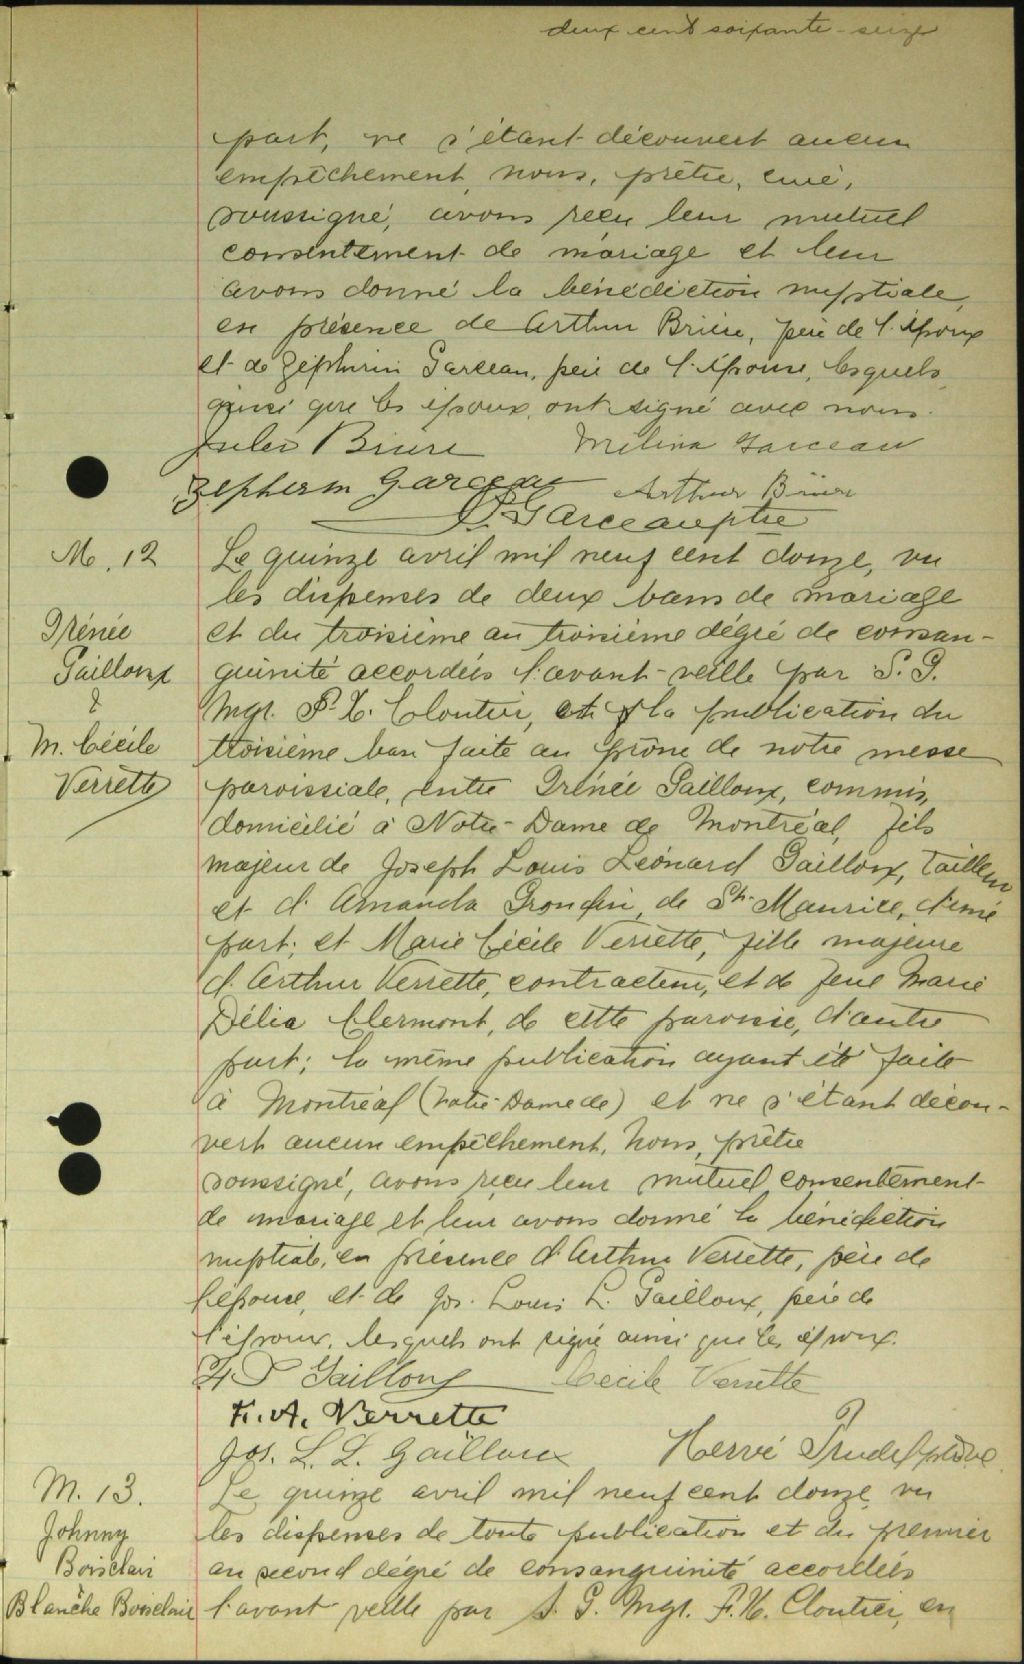 deux cent soixante-seize
part, ne s'étant découvert aucun
empêchement, nous, prêtre, curé,
soussigné, avons reçu leur mutuel
consentement de mariage et leur
avons donné la bénédiction nuptiale,
en présence de Arthur Brière, père de l'époux
et de Zéphirin Garceau, père de l'épouse, lesquels,
ainsi que les époux, ont signé avec nous.
Jules Briere Melina Garceau
Zepherin Garceau Arthur Brière
Garceau ptre
M. 12
Irénée
Gailloux
&
M. Cécile
Verrette
Le quinze avril mil neuf cent douze, vu
les dispenses de deux bans de mariage
et du troisième au troisième dégré de consan-
guinité accordées l'avant-veille par S. G.
Mgr. F. X. Cloutier, et la publication du
troisième ban faite au prône de notre messe
paroissiale, entre Irénée Gailloux, commis,
domicilié à Notre-Dame de Montréal, fils
majeur de Joseph Louis Léonard Gailloux, tailleur
et d'Amanda Grondin, de St-Maurice, d'une
part; et Marie Cécile Verrette, fille majeure
d'Arthur Verrette, contracteur, et de feue Marie
Délia Clermont, de cette paroisse, d'autre
part; la même publication ayant été faite
à Montréal (Notre-Dame de) et ne s'étant décou-
vert aucun empêchement, Nous, prêtre
soussigné, avons reçu leur mutuel consentement
de mariage et leur avons donné la bénédiction
nuptiale, en présence d'Arthur Verrette, père de
l'épouse, et de Jos. Louis L. Gailloux, père de
l'époux, lesquels ont signé ainsi que les époux.
Gailloux Cécile Verrette
F. A. Verrette
Jos. L. L. Gailloux Hervé Trudel ptre
M. 13.
Johnny
Boisclair
&
Blanche Boisclair
Le quinze avril mil neuf cent douze, vu
les dispenses de toute publication et du premier
au second dégré de consanguinité accordées
l'avant veille par S. G. Mgr. F. X. Cloutier, en